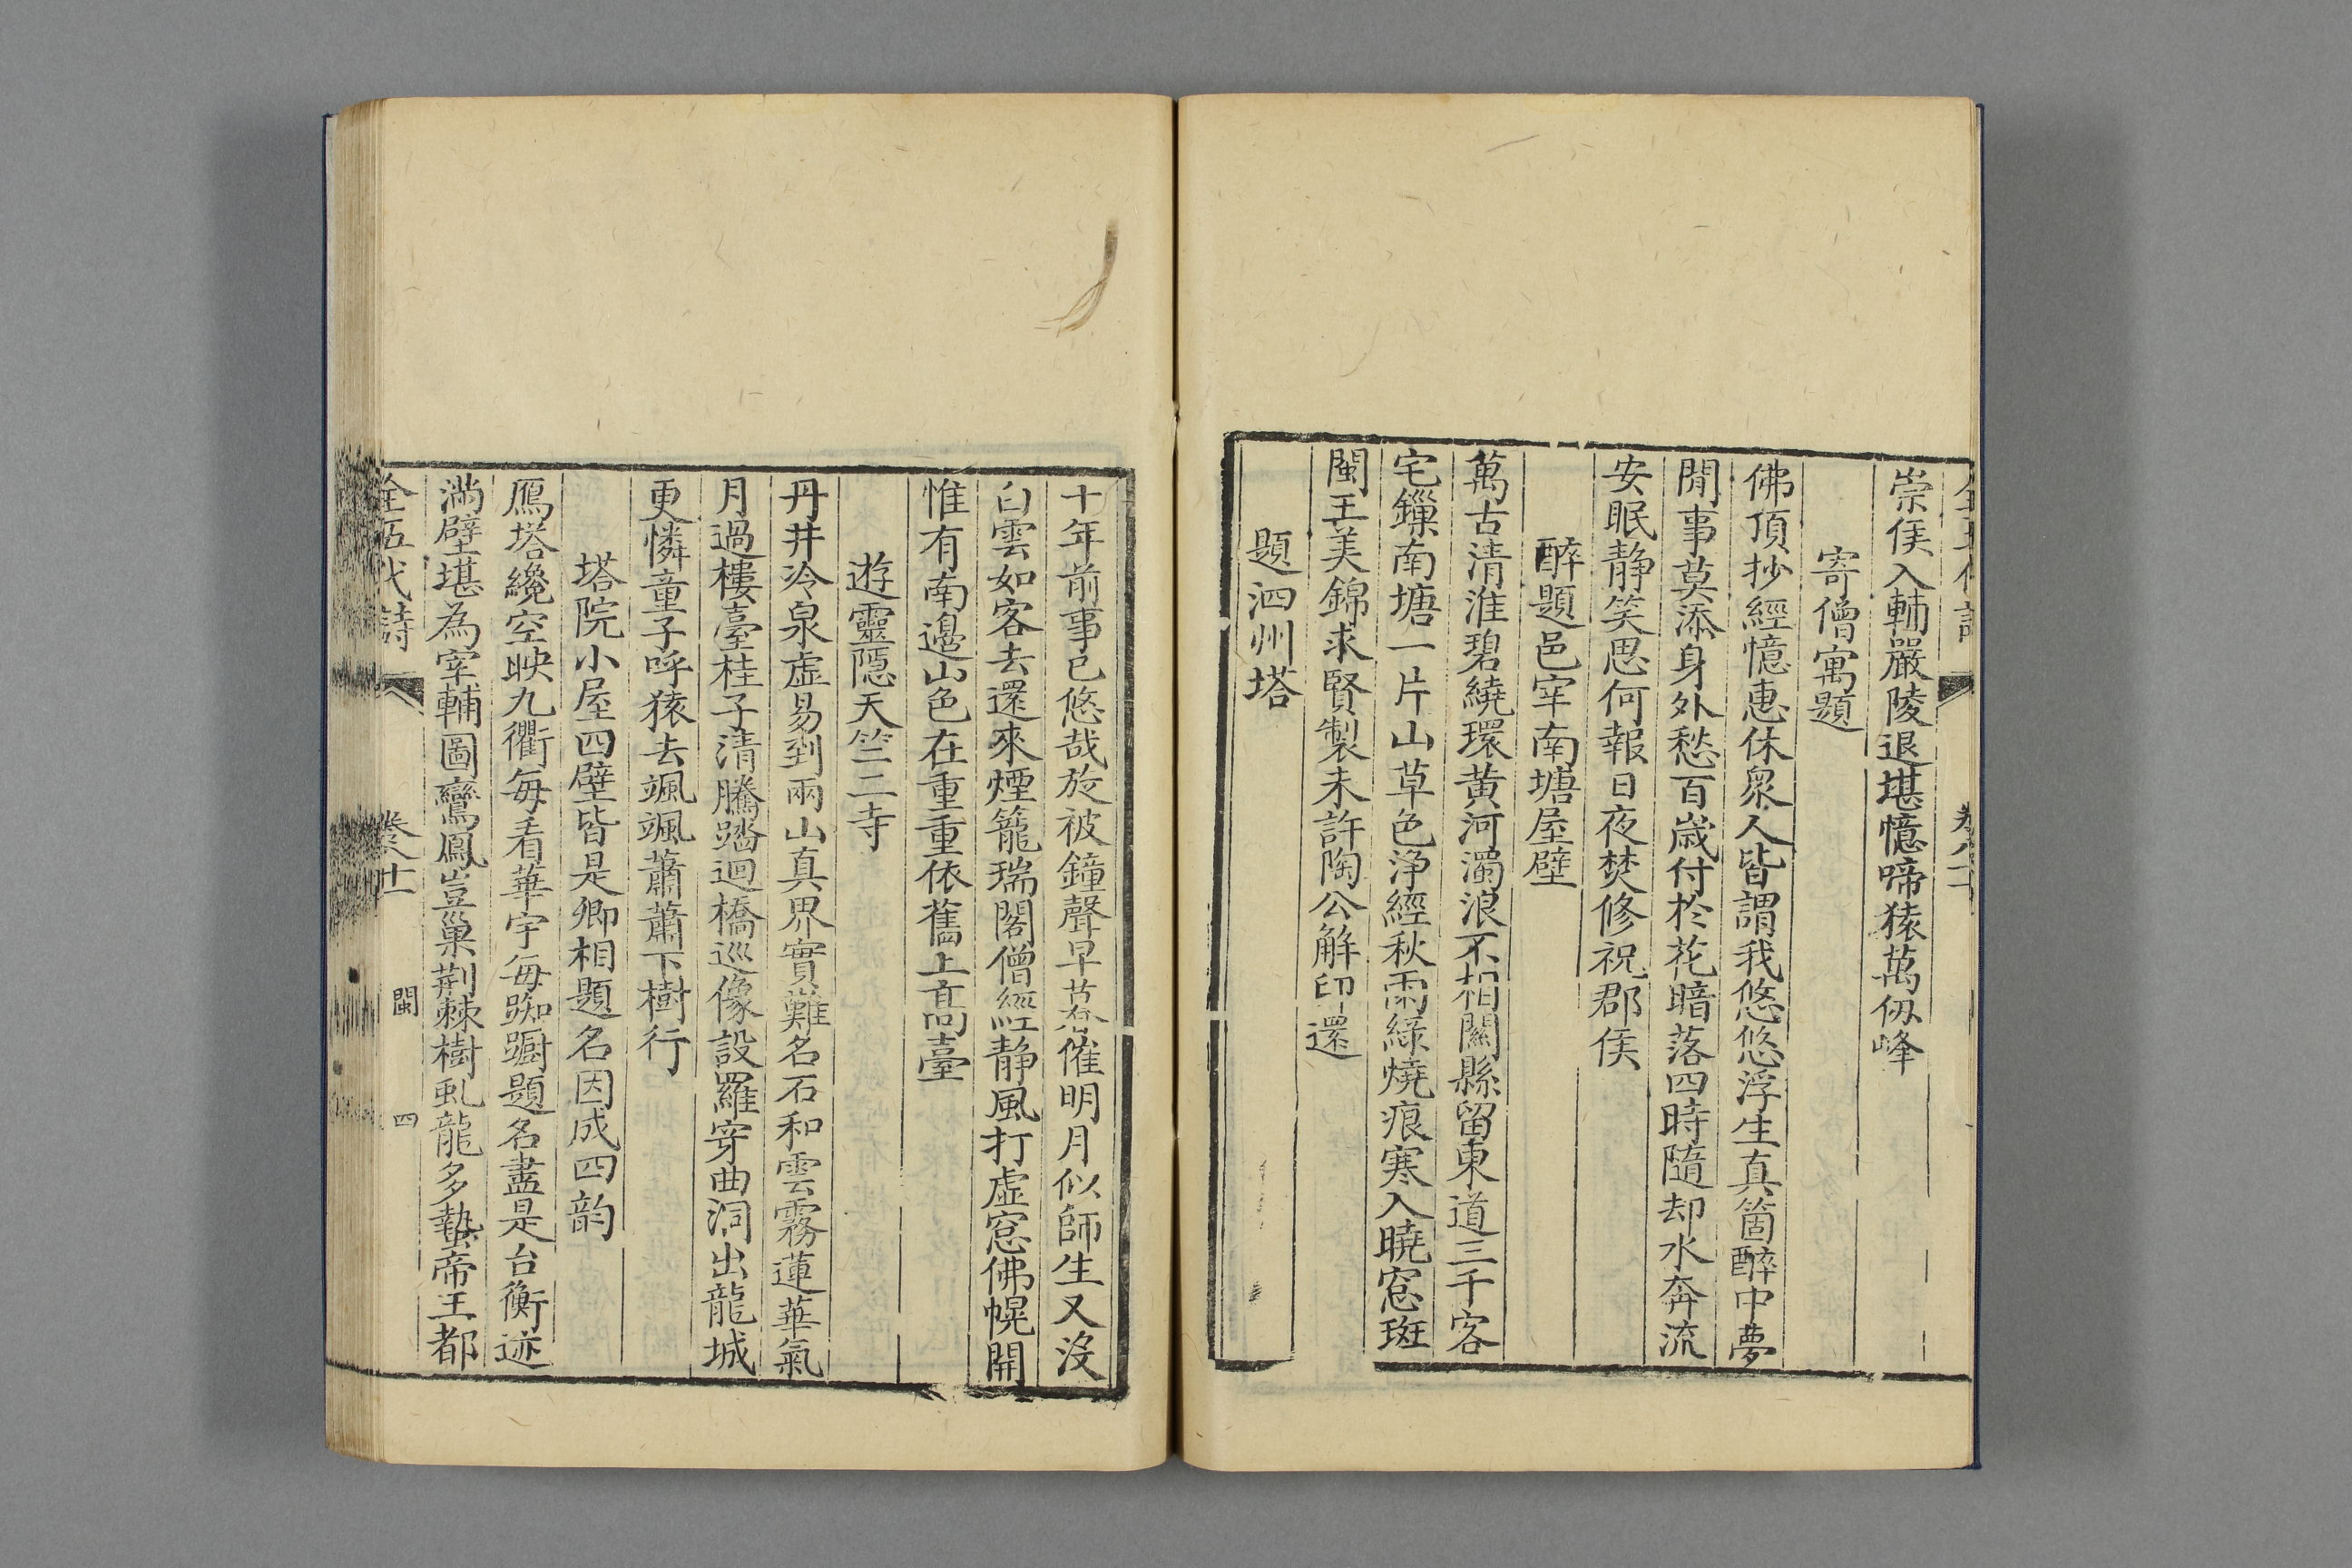 崇侯入輔嚴陵退堪憶啼猿萬仭峰
寄僧寓題
佛頂抄經憶惠休衆人皆謂我悠悠浮生真箇醉中夢
閒事莫添身外愁百歲付於花暗落四時隨却水奔流
安眠静笑思何報日夜焚修祝郡侯
醉題邑宰南塘屋壁
萬古清淮碧繞環黄河濁浪不相關縣留東道三千客
宅鏁南塘一片山草色浄經秋雨綠燒痕寒入曉窓斑
閩王美錦求賢製未許陶公解印還
題泗州塔
十年前事已悠哉旋被鐘聲早暮催明月似師生又没
白雲如客去還來煙籠瑞閣僧經静風打虛窓佛幌開
惟有南邊山色在重重依舊上高臺
遊靈隱天竺二寺
丹井冷泉虛易到兩山真界實難名石和雲霧蓮華氣
月過樓臺桂子清騰踏迴橋巡像設羅穿曲洞出龍城
更憐童子呼猿去颯颯蕭蕭下樹行
塔院小屋四壁皆是卿相題名因成四韵
鴈塔纔空映九衢每看華宇每踟躕題名盡是台衡迹
滿壁堪為宰輔圖鸞鳳豈巢荆棘樹虬龍多蟄帝王都
全五代詩 卷八十一 閩 四